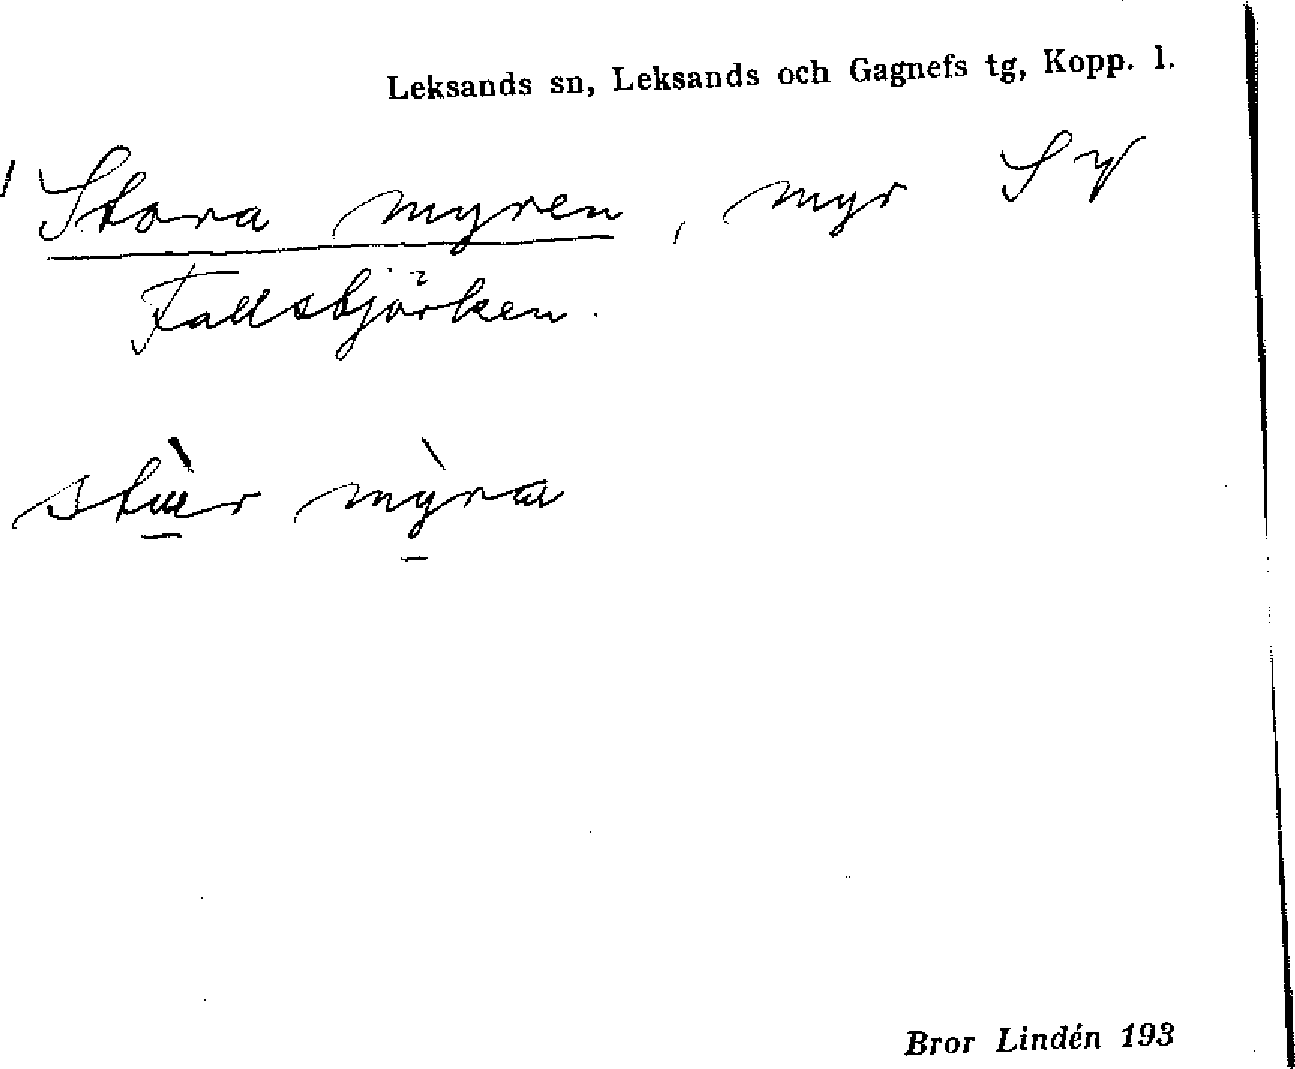 Leksands sn, Leksands och Gagnefs tg, Kopp. l.
Stora myren, myr SV
Fallsbjörken.
stùr mỳra
Bror Lindén 193